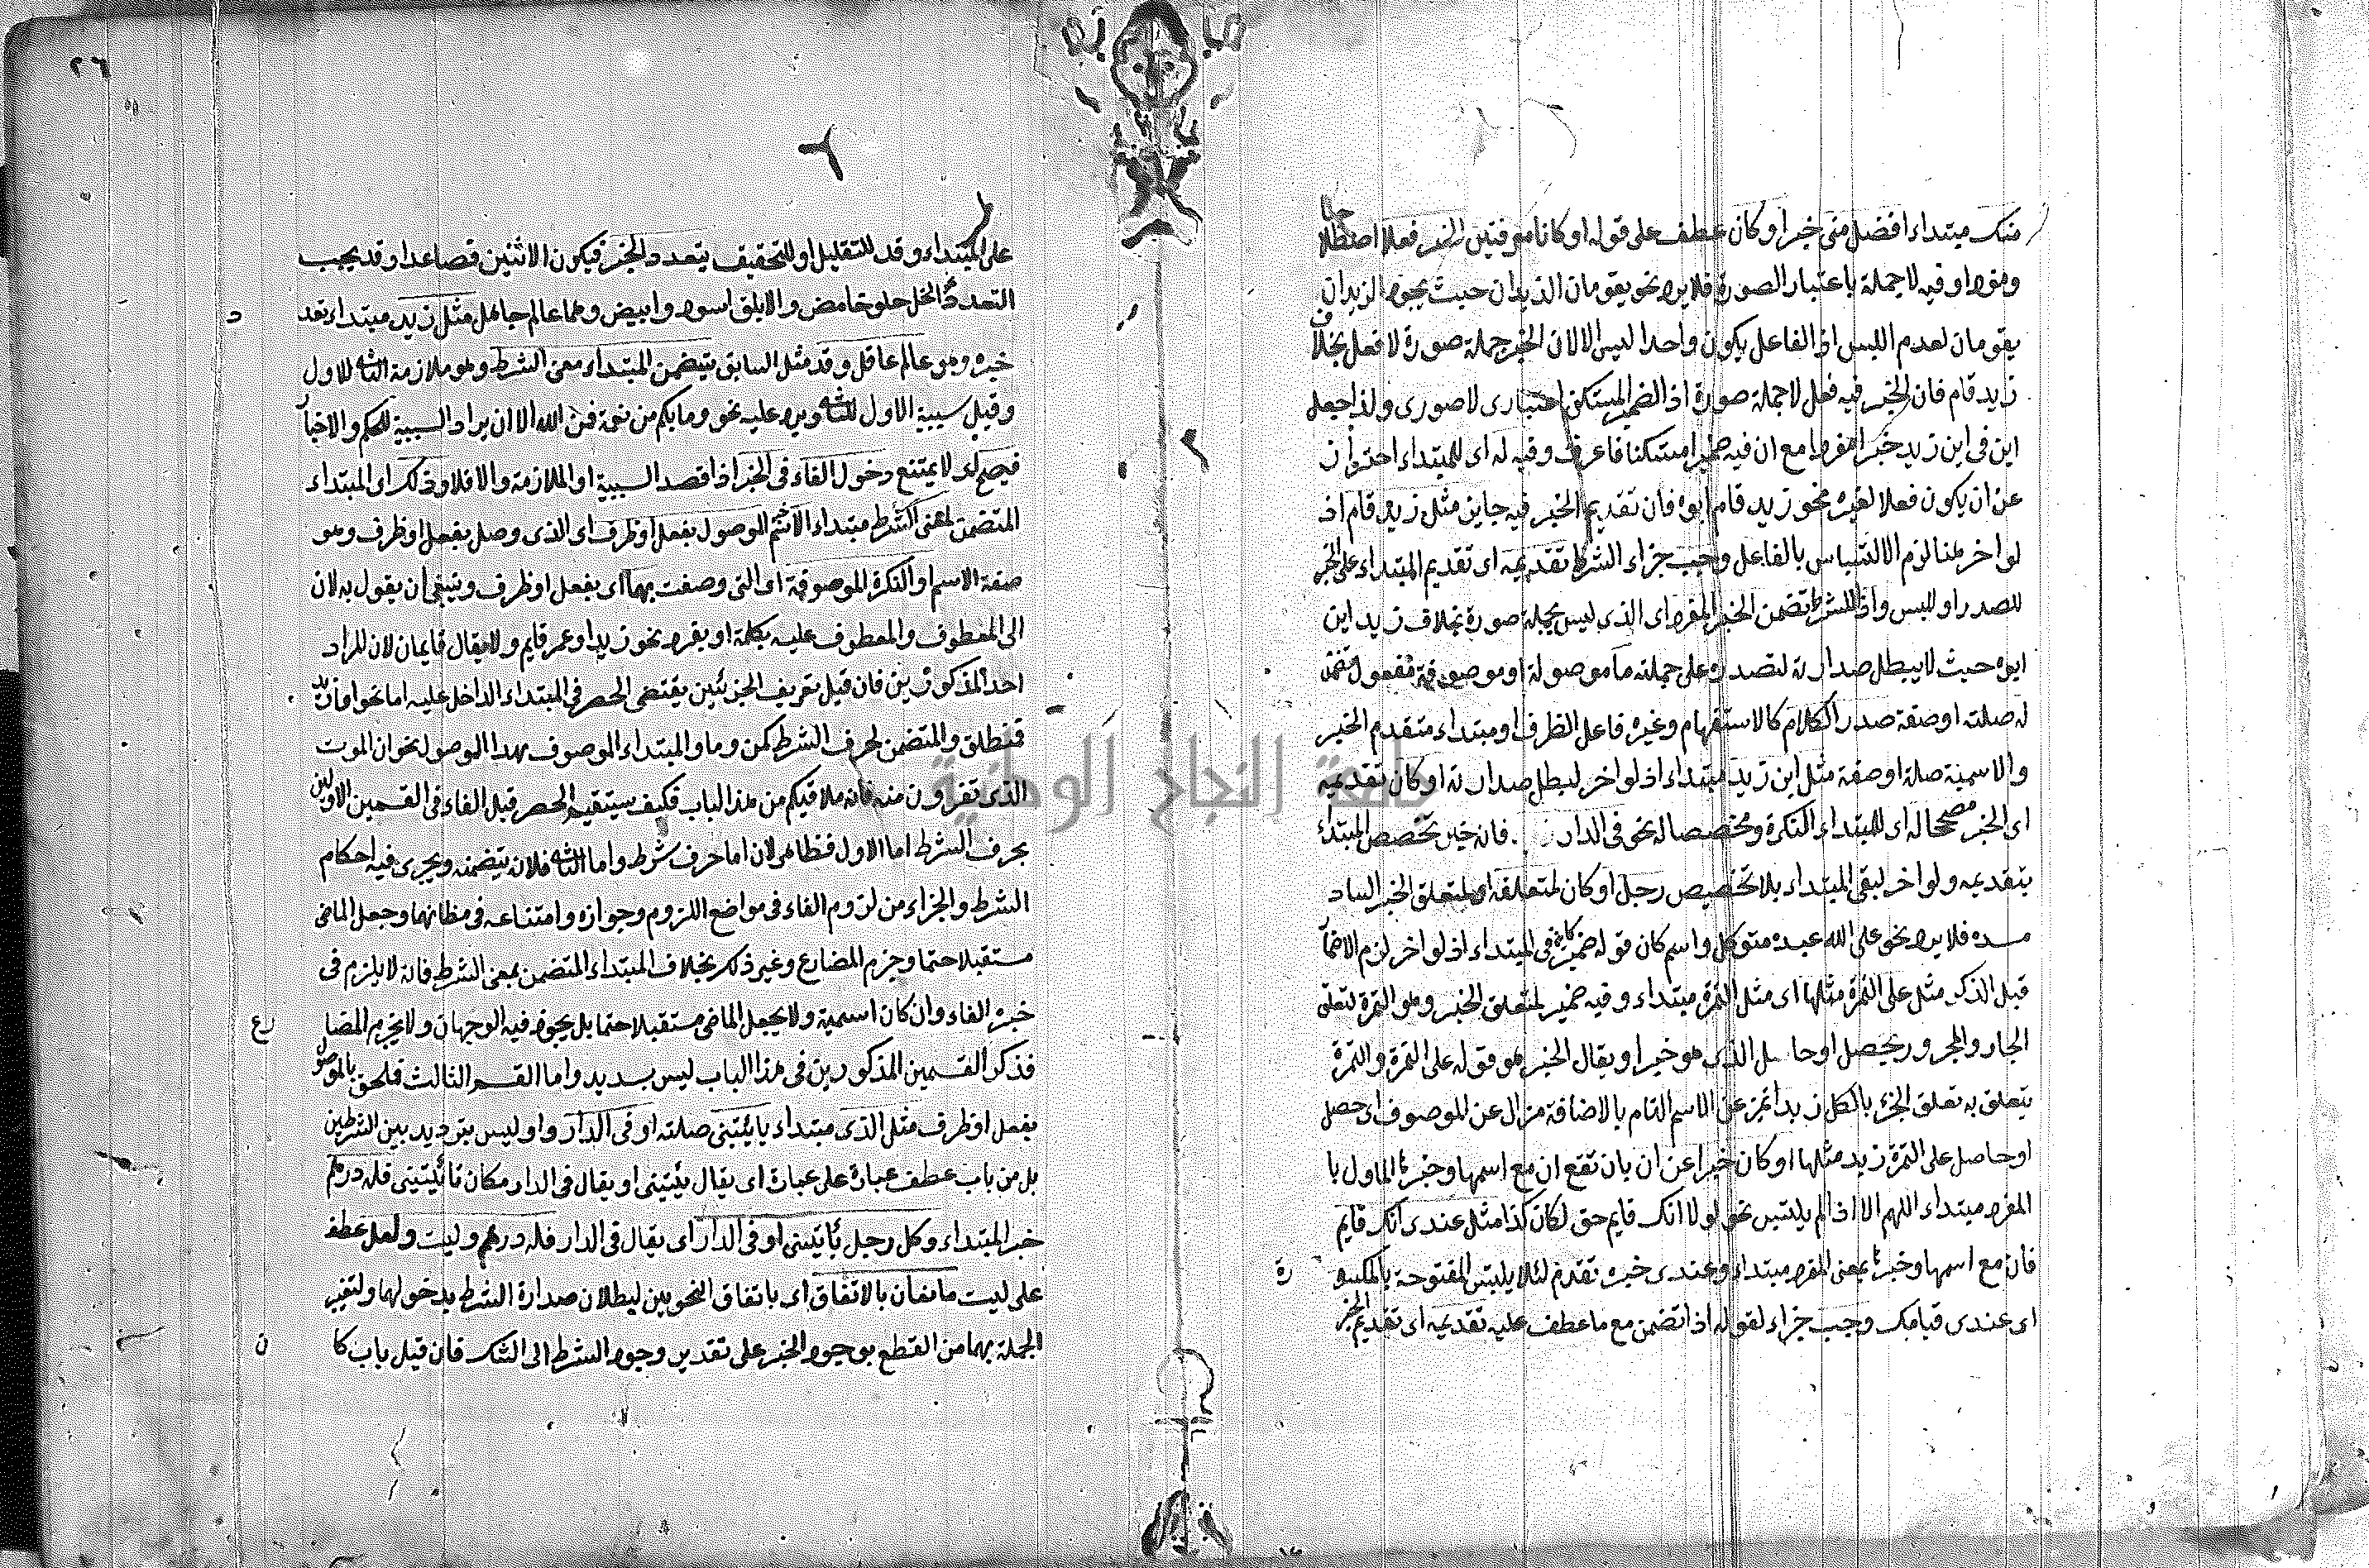 منك مبتداء افضل منى خبر او كان عطف على قوله او كانا معرفتين الخبر فعلا اصطلاحا
ومفردا وفيه لا جملة باعتبار الصورة فلا يرد نحو يقومان الزيدان حيث يجوز الزيدان
يقومان لعدم اللبس اذ الفاعل يكون واحدا ليس الا لان الخبر جملة صورة لا فعل بخلاف
زيد قام فان الخبر فيه فعل لا جملة صورة اذ الضمير المستكن اعتبارى لا صورى ولذا جعل
اين فى اين زيد خبرا مفردا مع ان فيه ضميرا مستكنا فاعرف وفيه له اى للمبتداء احتراز
عن ان يكون فعلا لغيره نحو زيد قام ابوه فان تقديم الخبر فيه جايز مثل زيد قام اذ
لو اخر هنا لزم الالتباس بالفاعل وجب جزاء الشرط تقديمه اى تقديم المبتداء على الخبر
للصدر او للبس واذا للشرط تضمن الخبر المفرد اى الذى ليس بجملة صورة بخلاف زيد اين
ابوه حيث لا يبطل صدارته لتصدره على جملته ما موصولة او موصوفة مفعول تضمن
له صلته او صفة صدر الكلام كالاستفهام وغيره فاعل الظرف او مبتداء متقدم الخبر
والاسمية صلة او صفة مثل اين زيد مبتداء اذ لو اخر لبطل صدارته او كان تقديمه
اى الخبر مصححا له اى للمبتداء النكرة ومخصصا له نحو فى الدار فان خبر تخصص المبتداء
بتقديمه ولو اخر لبقى المبتداء بلا تخصيص رجل او كان لمتعلقه او لمتعلق الخبر الساد
مسده فلا يرد نحو على الله عبده متوكل واسم كان قوله ضمير كاين فى المبتداء اذ لو اخر لزم الاضمار
قبل الذكر مثل على التمرة مثلها اى مثل التمرة مبتداء وفيه ضمير لمتعلق الخبر وهو التمرة لتعلق
الجار والمجرور بحصل او حاصل الذى هو خبر او يقال الخبر هو قوله على التمرة والتمرة
يتعلق به تعلق الجزء بالكل زبدا تميز عن الاسم التام بالاضافة مزال عن الموصوف اى حصل
او حاصل على التمرة زبد مثلها او كان خبرا عن ان بان تقع ان مع اسمها وخبرها الماول با
المفرد مبتداء اللهم الا اذا لم يلتبس نحو لولا انك قايم حق لكان كذا مثل عندى انك قايم
فان مع اسمها وخبرها بمعنى المفرد مبتداء وعندى خبره تقدم لئلا يلبس المفتوحة بالمكسورة
اى عندى قيامك وجب جزاء لقوله اذا تضمن مع ما عطف عليه تقديمه اى تقديم الخبر
٢٦
على المبتداء وقد للتقليل او للتحقيق يتعدد الخبر فيكون الاثنين فصاعدا وقد يجب
التعدد كالخل حلو حامض والابلق اسود وابيض وهما عالم جاهل مثل زيد مبتداء تعدد
خبره وهو عالم عاقل وقد مثل السابق يتضمن المبتداء معنى الشرط وهو ملازمة الثانى للاول
وقيل سببية الاول للثانى ويرد عليه نحو وما بكم من نعمة فمن الله الا ان يراد السببية للحكم والاخبار
فيصح اى لا يمتنع دخول الفاء فى الخبر اذا قصد السببية او الملازمة والا فلا وذلك اى المبتداء
المتضمن لمعنى الشرط مبتداء الاسم الموصول بفعل او ظرف اى الذى وصل بفعل او ظرف وهو
صفة الاسم او النكرة الموصوفة اى التى وصفت بهما اى بفعل او ظرف وينبغى ان يقول به لان
الى المعطوف والمعطوف عليه بكلمة او يفرد نحو زيد او عمر قايم ولا يقال قايمان لان المراد
احد المذكورين فان قيل تعريف الجزئين يقتضى الحصر فى المبتداء الداخل عليه اما نحو اما زيد
فمنطلق والمتضمن لحرف الشرط كمن وما والمبتداء الموصوف بهذا الموصول نحو ان الموت
الذى تفرون منه فانه ملاقيكم من هذا الباب فكيف يستقيم الحصر قيل الفاء فى القسمين الاولين
بحرف الشرط اما الاول فظاهر لان اما حرف شرط واما الثانى فلانه يتضمنه ويجرى فيه احكام
الشرط والجزاء من لزوم الفاء فى مواضع اللزوم وجوازه وامتناعه فى مظانهما وجعل الماضى
مستقبلا حتما وجزم المضارع وغير ذلك بخلاف المبتداء المتضمن بمعنى الشرط فانه لا يلزم فى
خبره الفاء وان كان اسمية ولا يجعل الماضى مستقبلا حتما بل يجوز فيه الوجهان ولا يجزم المضارع
فذكر القسمين المذكورين فى هذا الباب ليس بسديد واما القسم الثالث فلحق بالموصول
بفعل او ظرف مثل الذى مبتداء ياتيتنى صلته او فى الدار واو ليس بترديد بين الشرطين
بل من باب عطف عبارة على عبارة اى يقال يئتينى او يقال فى الدار مكان يأتيتنى فله درهم
خبر المبتداء وكل رجل يأتيتنى او فى الدار اى يقال فى الدار فله درهم وليت ولعل عطف
على ليت مانعان بالاتفاق اى باتفاق النحويين لبطلان صدارة الشرط بدخولهما ولتغير
الجملة بهما من القطع بوجود الخبر على تقدير وجود الشرط الى الشك فان قيل باب كان
جامعة النجاح الوطنية